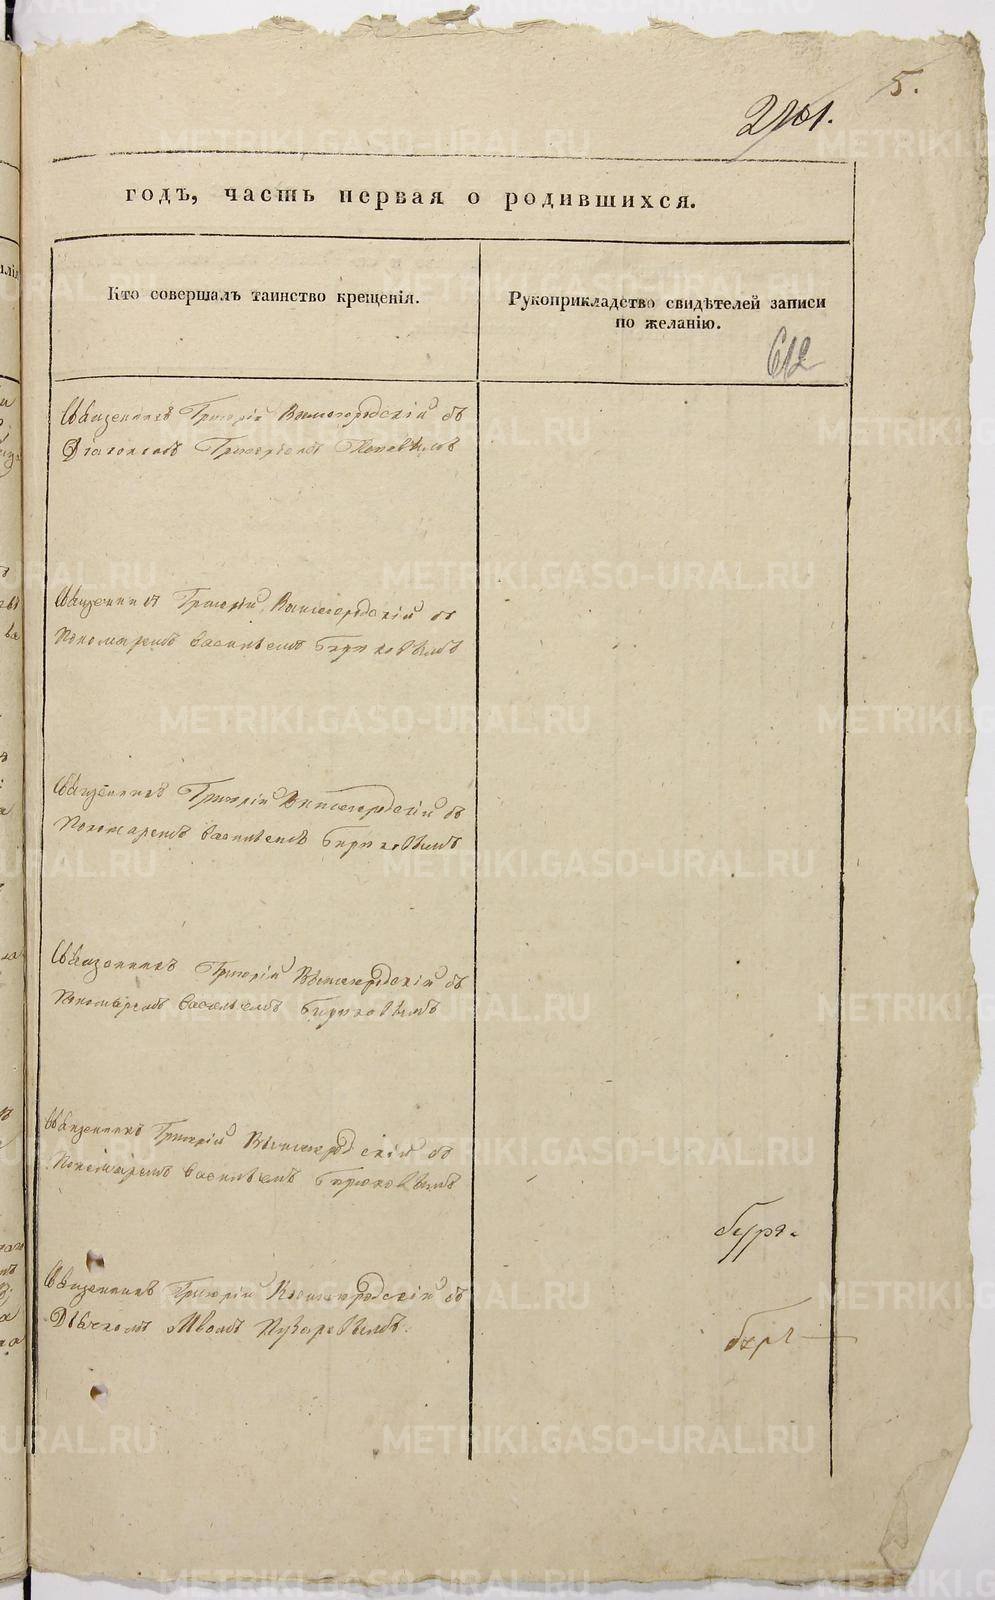 5.
годъ, часть первая о родившихся.
Кто совершалъ таинство крещенія.
Рукоприкладство свидѣтелей записи
по желанію.
612
Священникъ Григорій Вышегородскій съ
Діакономъ Григоріемъ
Священникъ Григорій Вышегородскій съ
Пономаремъ Василіемъ Бирюковымъ
Священникъ Григорій Вышегородскій съ
Пономаремъ Василіемъ Бирюковымъ
Священникъ Григорій Вышегородскій съ
Пономаремъ Василіемъ Бирюковымъ
Священникъ Григорій Вышегородскій съ
Пономаремъ Василіемъ Бирюковымъ
Священникъ Григорій Вышегородскій съ
Дьячкомъ
METRIKI.GASO-URAL.RU